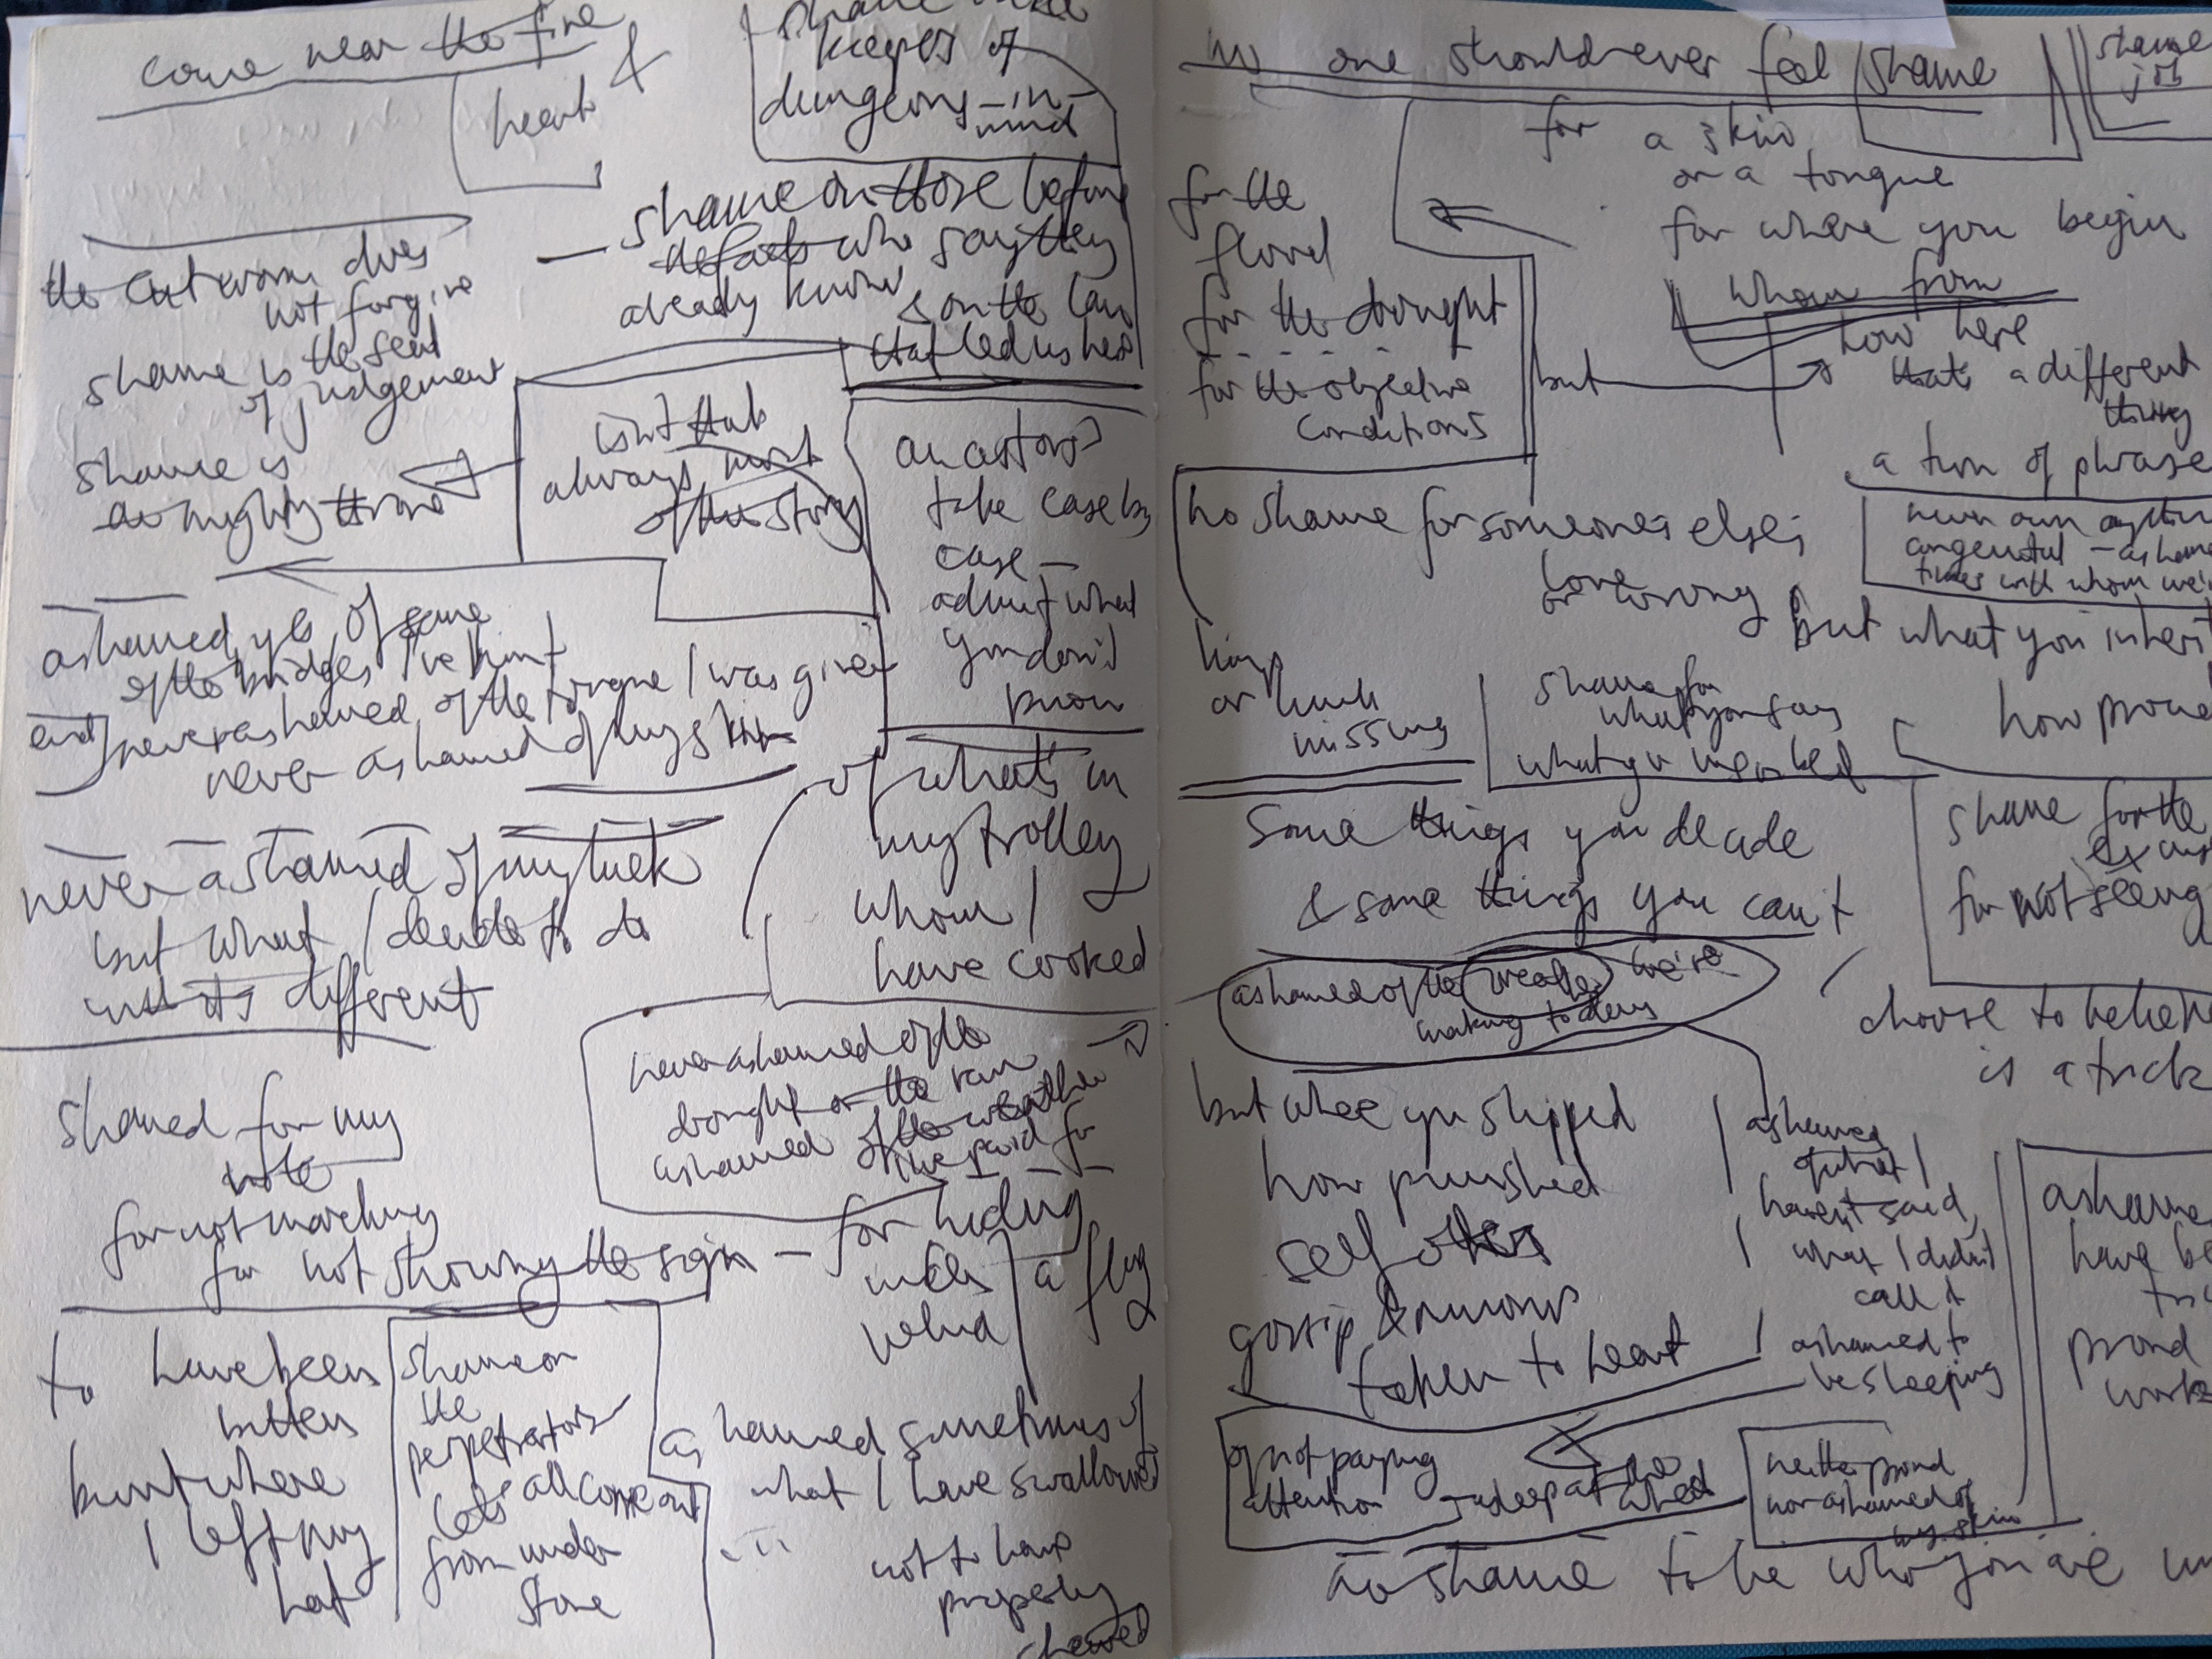 come near the fire
&
heart
keeper of
dungeons - in -
mind
— shame on those before
who say they
already know
& on the law
that led us here
the cutworm does
not forgive
the seed
shame is
of judgement
shame is
a mighty throne
isn't that
always most
of the story
ancestors
take case by
case —
admit what
you don't
know
ashamed, yes, of some
of the bridges I've burnt
and never ashamed of the tongue I was given
never ashamed of my skin
of what's in
my trolley
whom I
have cooked
never ashamed of my luck
but what I decide to do
with it's different
never ashamed of the
drought or the rain
ashamed of the weather
I've paid for
shamed for my
vote
for not marching
for not showing the sign — for hiding
a flag
to have been
bitten
burnt where
I left my
hat
shame on
the
perpetrators
let's all come out
from under
stone
ashamed sometimes of
what I have swallowed
...
not to have
properly
chewed
no one should ever feel shame
shame
for a skin
or a tongue
for where you begin
whom from
how here
that's a different
thing
for the
flood
for the drought
for the objective
conditions
but
a turn of phrase
no shame for someone else's
love
or wrong
but what you inherit
congenital —
times with whom we're
limp
or limb
missing
shame for
what you say
what you
how proud
Some things you decide
& some things you can't
shame for the
for not seeing
ashamed of the weather we're
making to slurs
choose to believe
is a trick
but where you shipped
how punished
self others
gossip & rumours
taken to heart
ashamed
of what I
haven't said,
what I didn't
call it
ashamed to
be sleeping
ashamed
have be
proud
work
of not paying
attention
— asleep at the
wheel
neither proud
nor ashamed of
my skin
no shame to be who you are